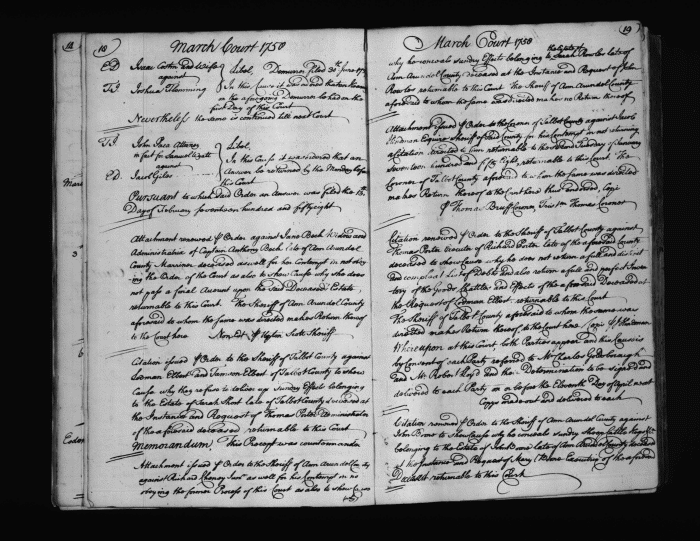 18
March Court 1758
E.D.
against
Libel, Demurrer filed 30th June
T.J.
Joshua Flemming
In this Cause it was
on the aforegoing Demurrer be had on the
first Day of this Court
Nevertheless the same is continued till next Court
T.J.
John Paca Attorney
in fact for Samuel
Libel,
against
In this Cause it was ordered that an
E.D.
Jacob Giles
Answer be returned by the Monday before
this Court
Pursuant to which said Order an Answer was filed the 18th
Day of February seventeen hundred and fifty eight
Attachment renewed Order against Jane Beck Widow and
Administratrix of Captain Anthony Beck late of Ann Arundel
County Marriner deceased as well for her Contempt in not obey
ing the Order of the Court as also to shew Cause why she does
not pass a final Account upon the said Deceased's Estate
returnable to this Court. The Sheriff of Ann Arundel County
aforesaid to whom the same was directed makes Return thereof
to the Court here Non Est Upton Scott Sheriff
Citation issued Order to the Sheriff of Talbot County against
Lodman Elbert and Samson Elbert of Talbot County to shew
Cause why they refuse to deliver up sundry Effects belonging
to the Estate of Sarah late of Talbot County deceased at
the Instance and Request of Thomas Porter Administrator
of the aforesaid deceased returnable to this Court
Memorandum. This Precept was countermanded
Attachment issued Order to the Sheriff of Ann Arundel County
against Richard as well for his Contempt in no
obeying the former Process of this Court as also to shew Cause
why
19
March Court 1758
why he conceals sundry Effects belonging to the Estate of Sarah Rawles late of
Ann Arundel County deceased at the Instance and Request of John
returnable to this Court The Sheriff of Ann Arundel County
aforesaid to whom the same was directed makes no Return thereof
Attachment issued Order to the Coroner of Talbot County against Jacob
Hindman Esquire Sheriff of said County for his Contempt in not returning
a Citation directed to him returnable to the Second Tuesday of January
Seventeen hundred and fifty eight, returnable to this Court. The
Coroner of Talbot County aforesaid to whom the same was directed
makes Return thereof to the Court here thus endorsed, Cepi
Thomas Bruff Coroner, Test Thomas Coroner
Citation renewed Order to the Sheriff of Talbot County against
Thomas Porter Executor of Richard Porter late of the aforesaid County
deceased to shew Cause why he does not return a full and distinct
and compleat List of Debts and also return a full and perfect Inven
tory of the Goods Chattles and Effects of the aforesaid Deceased at
the Request of Lodman Elbert returnable to this Court
The Sheriff of Talbot County aforesaid to whom the same was
directed makes Return thereof to the Court here Cepi J. Hindman
Whereupon at this Court both Parties appear and the Cause is
by Consent of each Party referred to Mr Charles Goldsborough
and Mr Robert and the Determination to be signed and
delivered to each Party on or before the Eleventh Day of April next
Copys made out and delivered to each
Citation renewed Order to the Sheriff of Ann Arundel County against
John to shew Cause why he conceals sundry
belonging to the Estate of John late of Ann Arundel County deceased
at the Instance and Request of Mary Executrix of the aforesaid
Deceased returnable to this Court